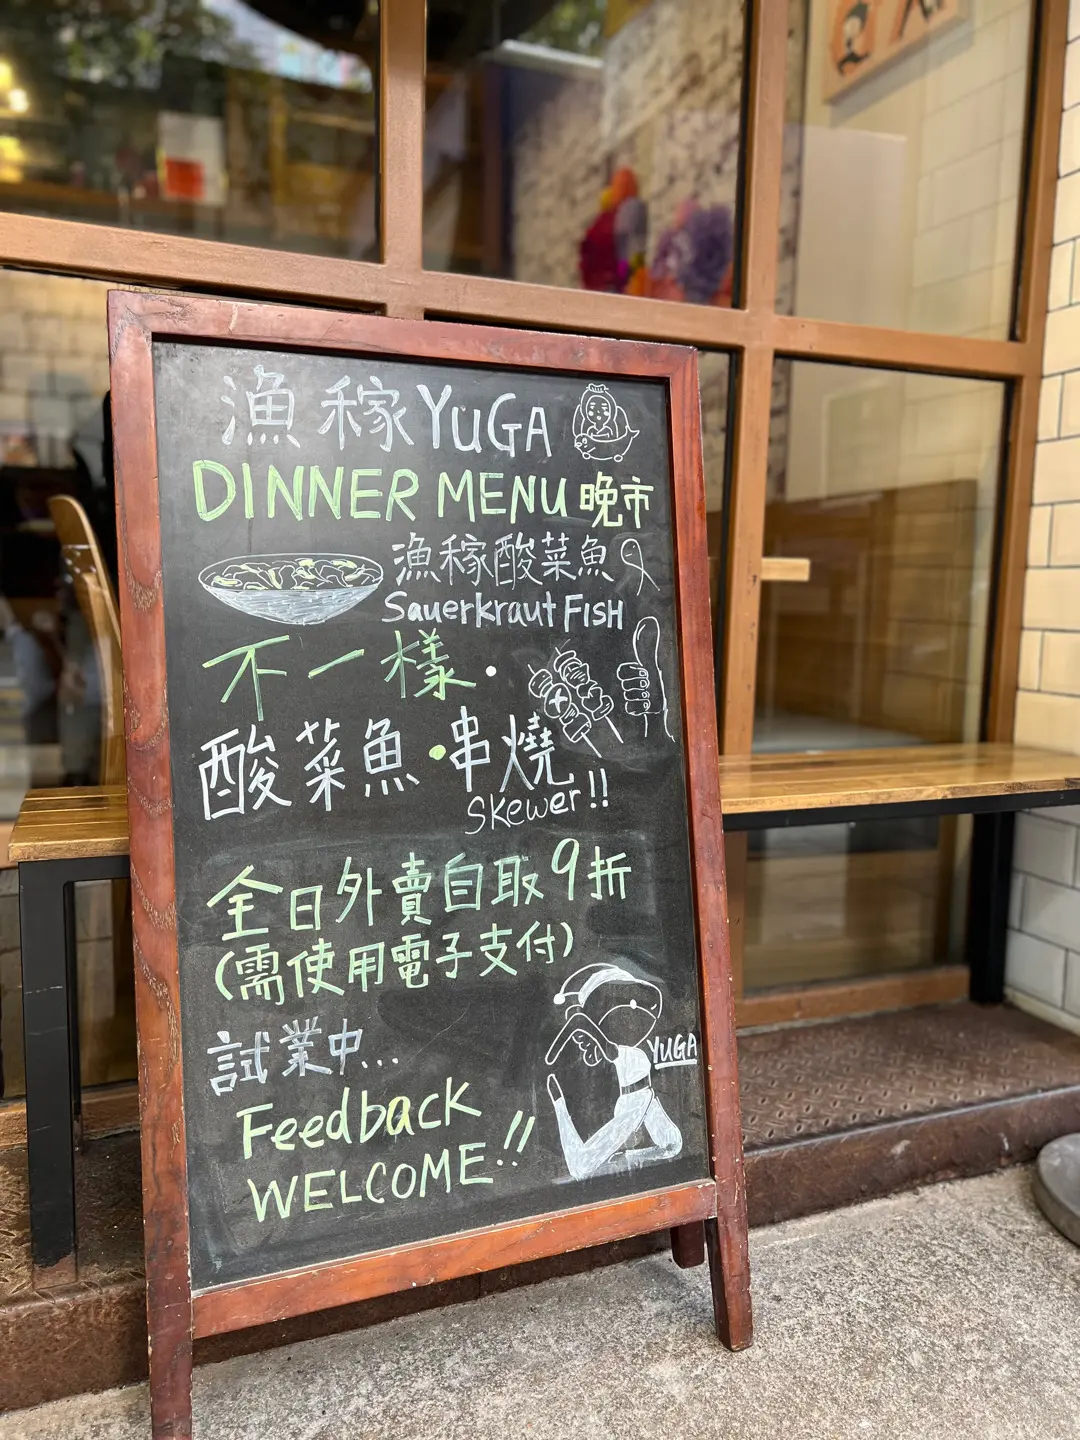 漁稼YUGA
DINNER MENU 晚市
漁稼酸菜魚
Sauerkraut FISH
不一樣·
酸菜魚·串燒
Skewer!!
全日外賣自取9折
(需使用電子支付)
試業中...
YUGA
Feedback
WELCOME!!